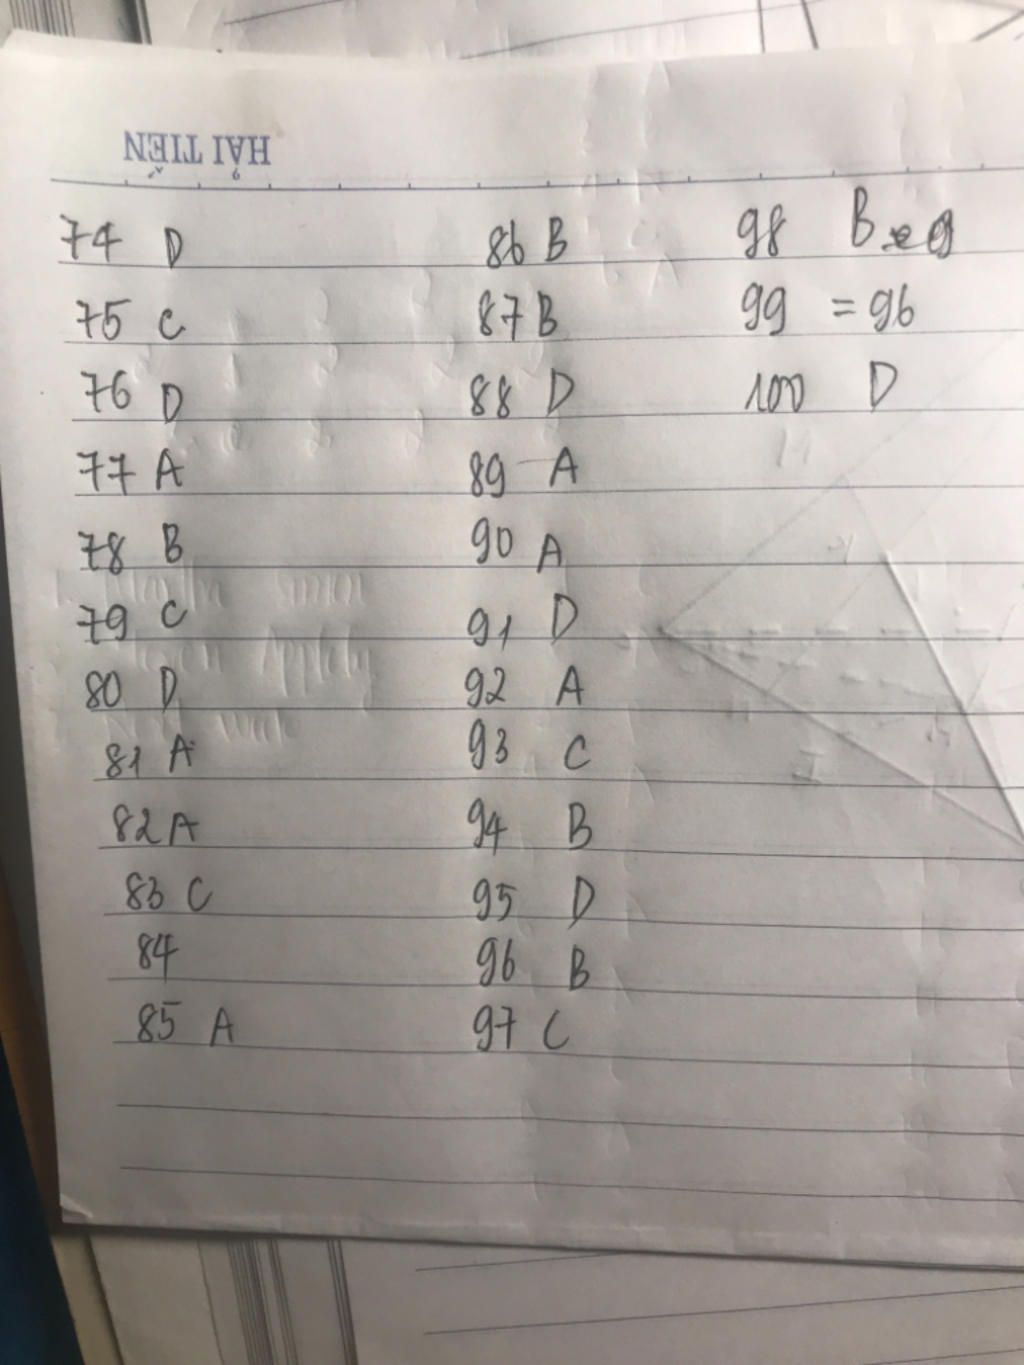 HẢI TIẾN
74 D
75 C
76 D
77 A
78 B
79 C
80 D
81 A
82 A
83 C
84
85 A
86 B
87 B
88 D
89 A
90 A
91 D
92 A
93 C
94 B
95 D
96 B
97 C
98 B
99 = 96
100 D